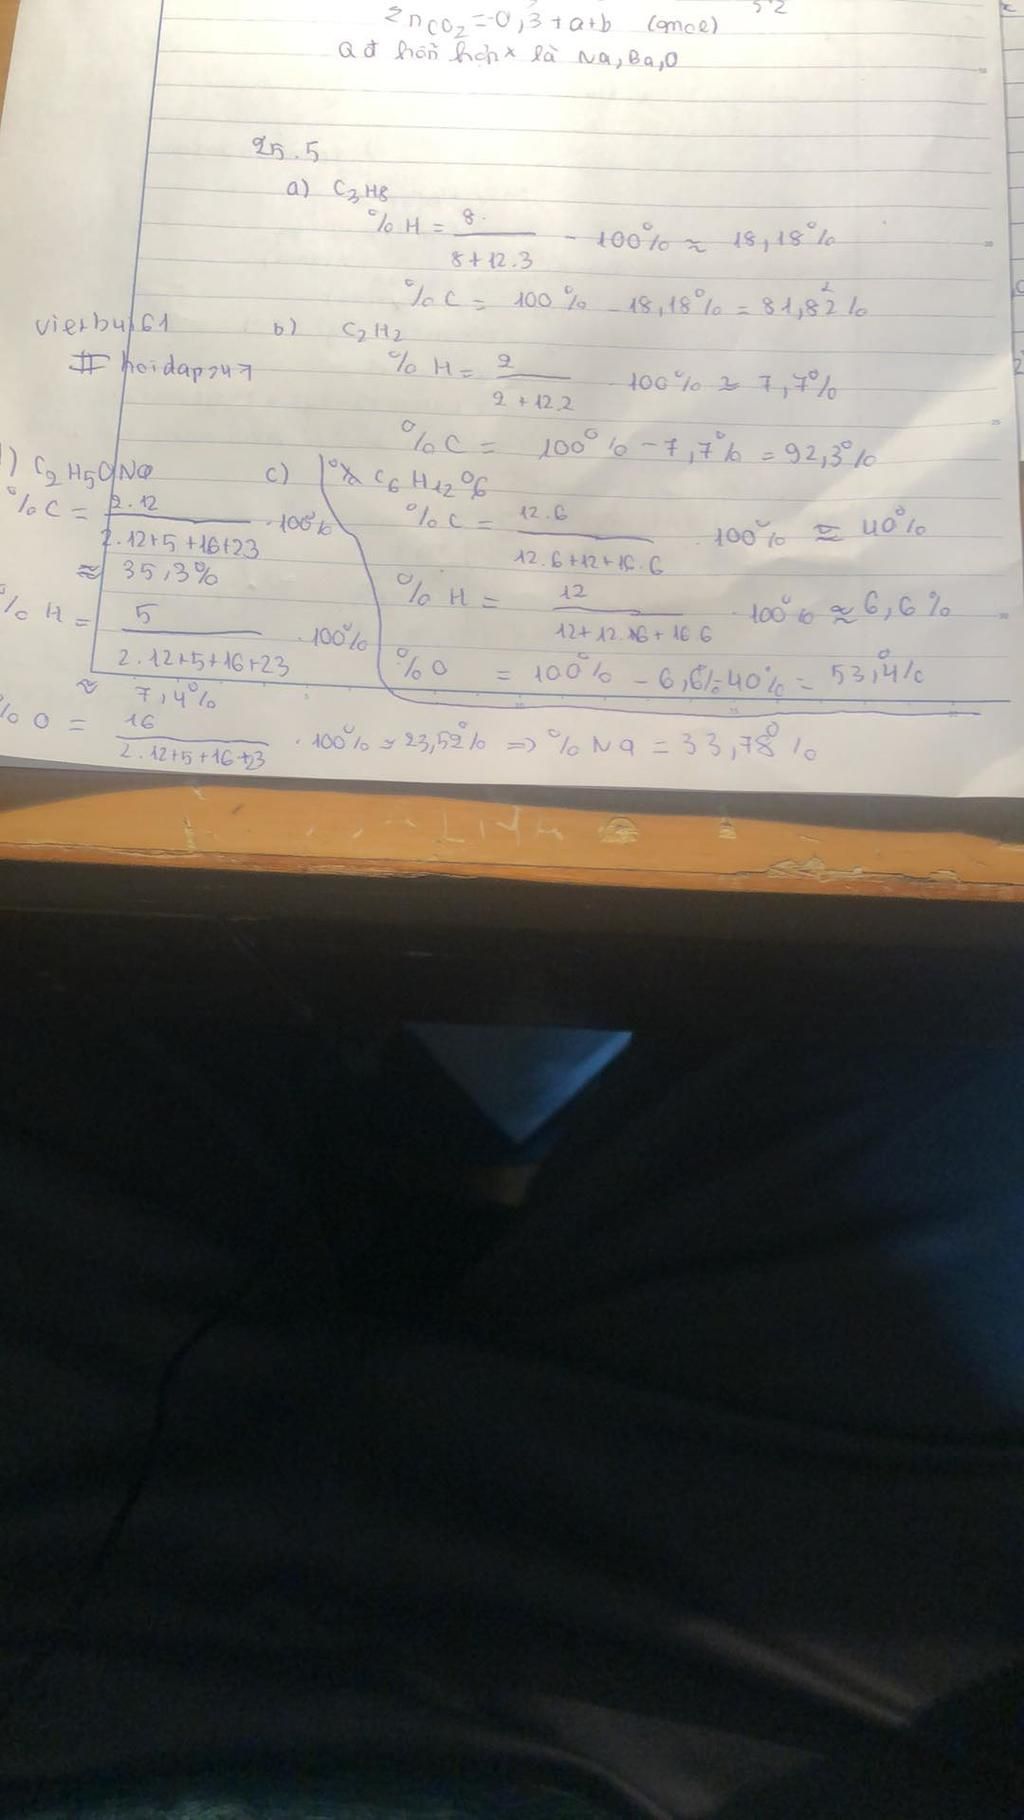 Σnco₂ = 0,3 + a+b (mol)
Qđ hỗn hợp x là Na, Ba, O
25.5
a) C₃H8
% H = 8 / 8+12.3 . 100% ≈ 18,18%
%C = 100% - 18,18% = 81,82%
vietbui61
# hoidap247
b) C₂H₂
% H = 2 / 2+12.2 100% ≈ 7,7%
%C = 100% - 7,7% = 92,3%
c) C₆H₁₂O₆
%C = 12.6 / 12.6+12+16.6 . 100% ≈ 40%
% H = 12 / 12+12.6+16.6 . 100% ≈ 6,6%
%O = 100% - 6,6% - 40% = 53,4%
) C₂H5ONa
%C = 2.12 / 2.12+5+16+23 . 100%
≈ 35,3%
% H = 5 / 2.12+5+16+23 . 100%
≈ 7,4%
% O = 16 / 2.12+5+16+23 . 100% ≈ 23,52% => % Na = 33,78%